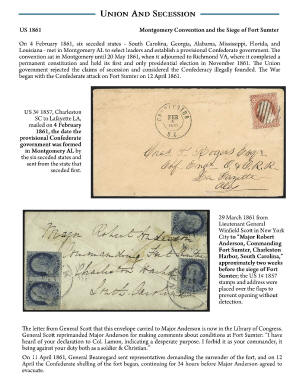 UNION AND SECESSION
US 1861
Montgomery Convention and the Siege of Fort Sumter
On 4 February 1861, six seceded states - South Carolina, Georgia, Alabama, Mississippi, Florida, and
Louisiana - met in Montgomery AL to select leaders and establish a provisional Confederate government. The
convention sat in Montgomery until 20 May 1861, when it adjourned to Richmond VA, where it completed a
permanent constitution and held its first and only presidential election in November 1861. The Union
government rejected the claims of secession and considered the Confederacy illegally founded. The War
began with the Confederate attack on Fort Sumter on 12 April 1861.
US 3¢ 1857, Charleston
SC to Lafayette LA,
mailed on 4 February
1861, the date the
provisional Confederate
government was formed
in Montgomery AL by
the six seceded states and
sent from the state that
seceded first.
CHARLESTON
FEB
S.C.
Chas. Rogers Esqr
La Fayette
29 March 1861 from
Lieutenant General
Winfield Scott in New York
City to "Major Robert
Anderson, Commanding
Fort Sumter, Charleston
Harbor, South Carolina,"
approximately two weeks
before the siege of Fort
Sumter; the US 1¢ 1857
stamps and address were
placed over the flaps to
prevent opening without
detection.
Major Robert Anderson
Commanding Fort
Charleston Harbor
The letter from General Scott that this envelope carried to Major Anderson is now in the Library of Congress.
General Scott reprimanded Major Anderson for making comments about conditions at Fort Sumter: "I have
heard of your declaration to Col. Lamon, indicating a desperate purpose. I forbid it as your commander, it
being against your duty both as a soldier & Christian."
On 11 April 1861, General Beauregard sent representatives demanding the surrender of the fort, and on 12
April the Confederate shelling of the fort began, continuing for 34 hours before Major Anderson agreed to
evacuate.